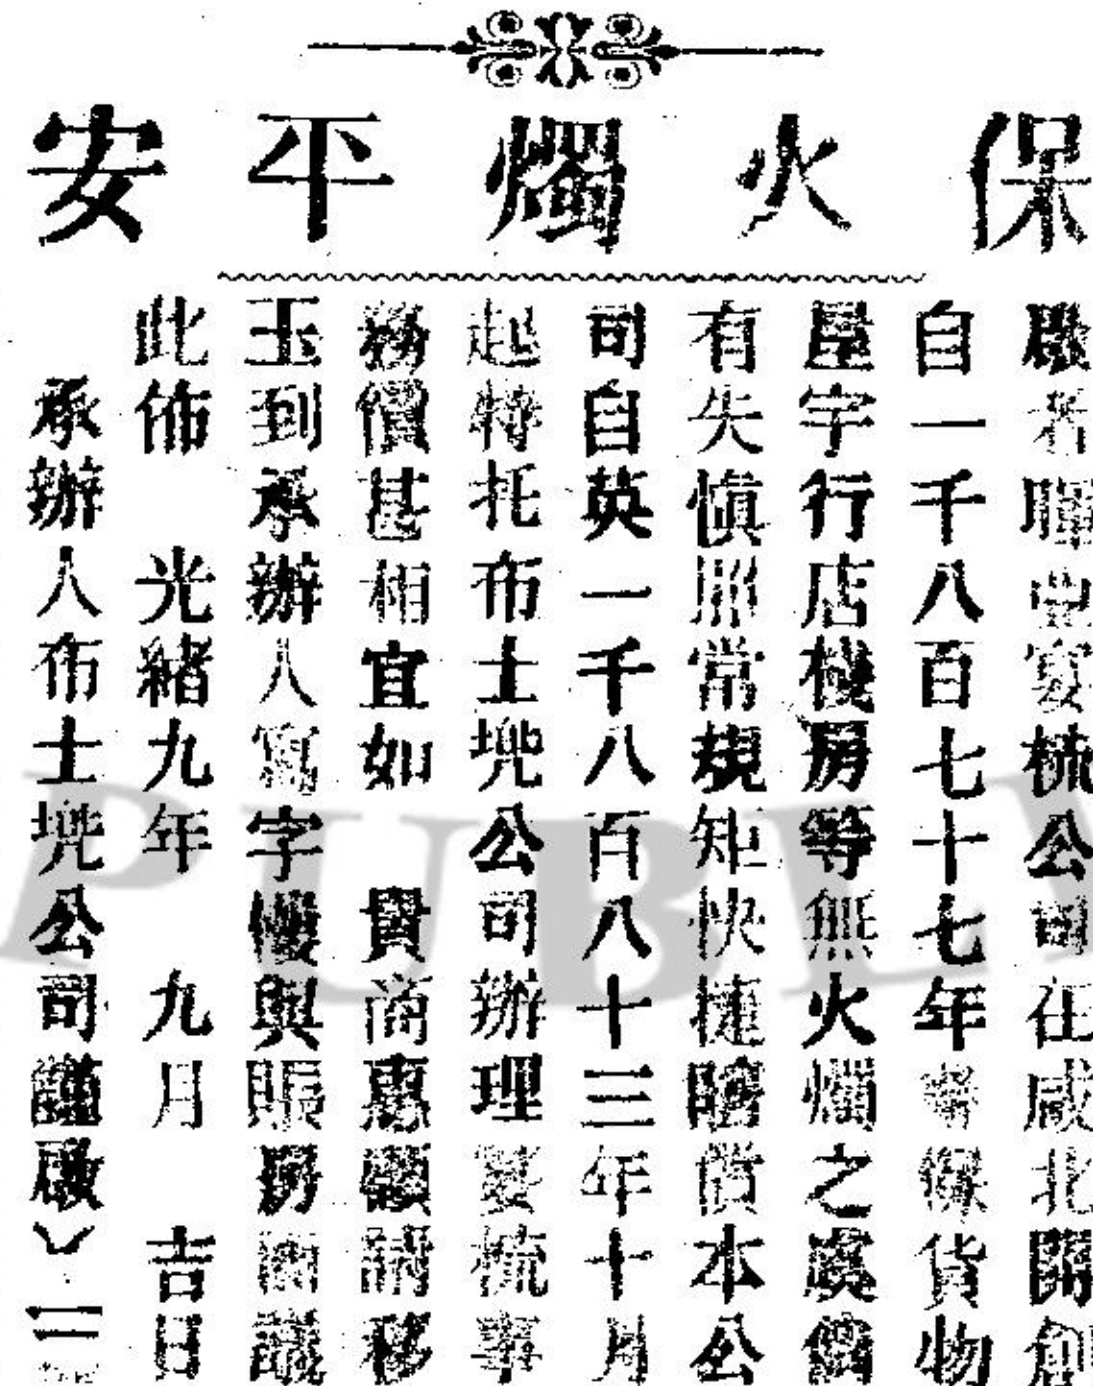 保火燭平安
啟者暉㽞宴梳公司在咸北開創
自一千八百七十七年專保貨物
屋宇行店棧房等無火燭之虞倘
有失慎照常規矩快捷賠償本公
司自英一千八百八十三年十月
起特托布士兠公司辦理宴梳事
務價甚相宜如 貴商惠顧請移
玉到承辦人寫字樓與賬房面議
此佈 光緒九年 九月 吉日
承辦人布士兠公司謹啟
PUBLI